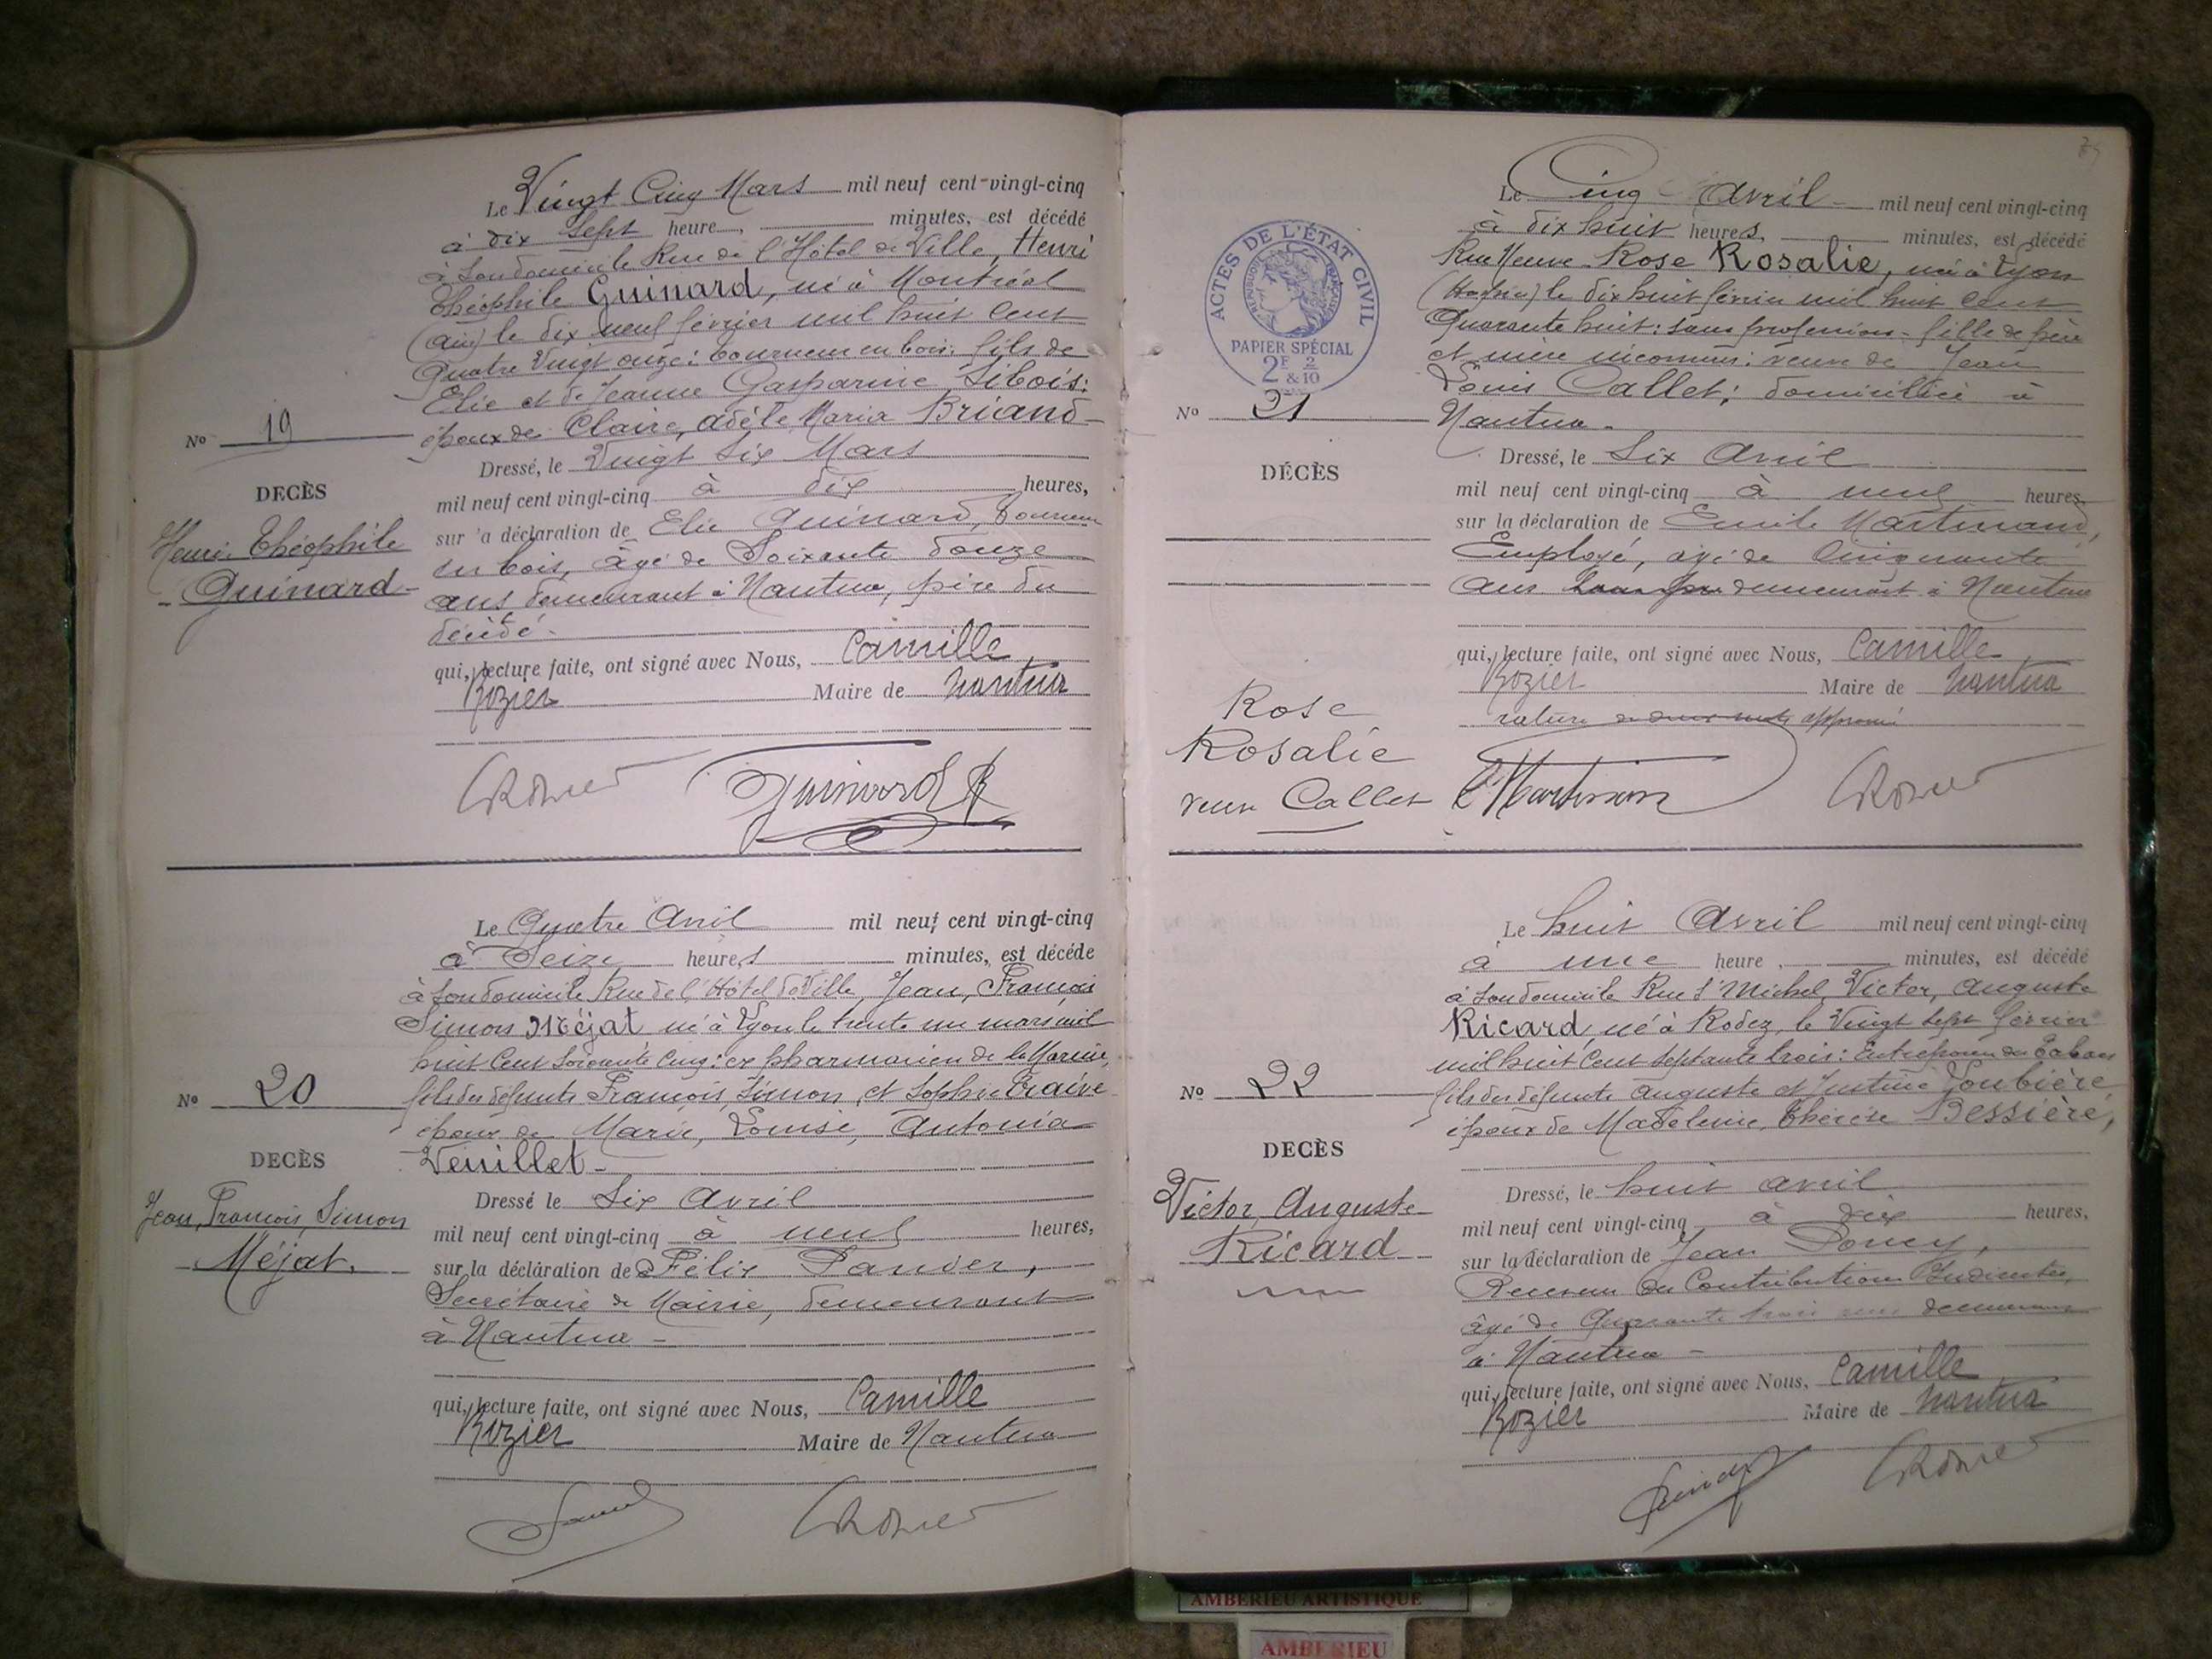 Le Vingt Cinq Mars mil neuf cent vingt-cinq
à dix sept heure, minutes, est décédé
à son domicile Rue de l'Hôtel de Ville, Henri
Théophile Guinard, né à Montréal
(Ain) le dix neuf février mil huit cent
Quatre Vingt onze: tourneur en bois: fils de
Elie et de Jeanne Gasparine Sibois:
époux de Claire, Adèle Maria Briand
No 19
Dressé, le Vingt Six Mars
DECÈS
mil neuf cent vingt-cinq à dix heures,
Henri Théophile
Guinard
sur la déclaration de Elie Guinard, tourneur
en bois, âgé de Soixante douze
ans demeurant à Nantua, père du
décédé.
qui, lecture faite, ont signé avec Nous, Camille
Rozier Maire de Nantua
CRozier Guinard
Le Quatre Avril mil neuf cent vingt-cinq
à Seize heures minutes, est décédé
à son domicile Rue de l'Hôtel de Ville, Jean, François
Simon Méjat né à Lyon le trente un mars mil
huit Cent Soixante Cinq: ex pharmacien de la Marine,
fils des défunts François, Simon, et Sophie Praive
No 20
époux de Marie, Louise, Antonia
DECÈS
Veuillet
Jean, François, Simon
Méjat.
Dressé le Six Avril
mil neuf cent vingt-cinq à neuf heures,
sur la déclaration de Félix Pander,
Secrétaire de Mairie, demeurant
à Nantua
qui, lecture faite, ont signé avec Nous, Camille
Rozier Maire de Nantua
CRozier
ACTES DE L'ÉTAT CIVIL
RÉPUBLIQUE FRANÇAISE
PAPIER SPÉCIAL
2F 2
& 10
Le Cinq Avril mil neuf cent vingt-cinq
à dix huit heures, minutes, est décédé
Rue Neuve Rose Rosalie, née à Lyon
le dix huit février mil huit cent
Quarante huit: sans profession - fille de père
et mère inconnus: veuve de Jean
Louis Callet; domiciliée à
No 21
Nantua
DÉCÈS
Dressé, le Six Avril
mil neuf cent vingt-cinq à neuf heures
sur la déclaration de Emile Martinand,
Employé, âgé de Cinquante
ans demeurant à Nantua
qui, lecture faite, ont signé avec Nous, Camille
Rozier Maire de Nantua
rature de deux mots approuvé
Rose
Rosalie
veuve Callet
CRozier
Le huit Avril mil neuf cent vingt-cinq
à une heure, minutes, est décédé
à son domicile Rue St Michel Victor, Auguste
Ricard, né à Rodez, le Vingt Sept février
mil huit Cent Septante trois: Entreposeur des Tabacs
fils des défunts Auguste et Justine Loubière,
époux de Madeleine, Thérèse Bessière,
No 22
DECÈS
Victor, Auguste
Ricard
Dressé, le huit avril
mil neuf cent vingt-cinq à dix heures,
sur la déclaration de Jean
Receveur des Contributions Indirectes,
âgé de Quarante trois ans demeurant
à Nantua
qui, lecture faite, ont signé avec Nous, Camille
Rozier Maire de Nantua
CRozier
AMBERIEU ARTISTIQUE
AMBERIEU